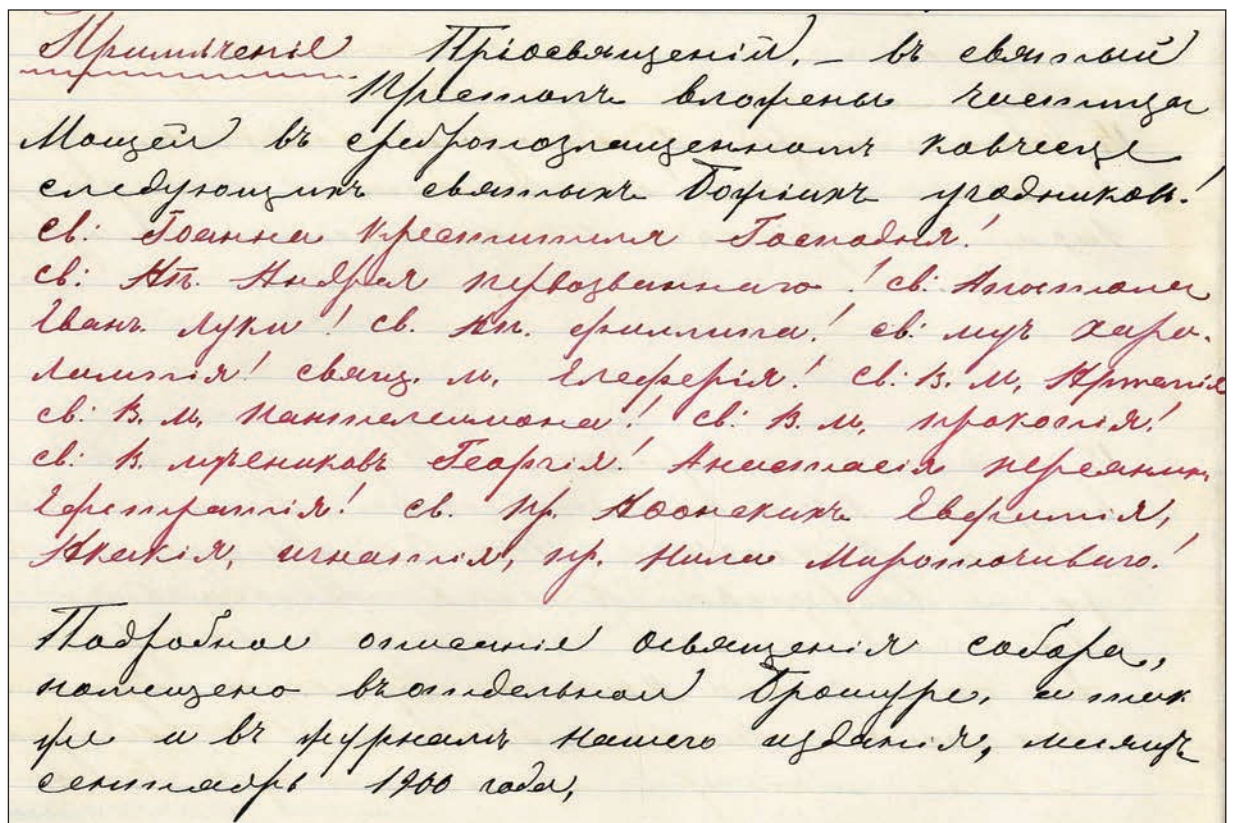 Примѣченіе Пріосвященій, – въ святый
Престолъ вложены частицы
Мощей въ сребропозлащенномъ ковчегцѣ
следующихъ святыхъ Божіихъ угодниковъ!
св: Іоанна Крестителя Господня!
св: Ап. Андрея первозваннаго! св: Апостола
Еван. Луки! св. Ап. Филиппа! св: муч Хара-
лампія! свящ. м, Елеферія! св: в. м, Артемія
св: в. м, Пантелеимона! св: в. м, прокопія!
св: в. мучениковъ Георгія! Анастасія персянин,
Ефстратія! св. пр. Аѳонскихъ Евфимія,
Акакія, игнатія, пр. Нила Мироточиваго!
Подробное описаніе освященія собора,
помещено въ отдельной брошуре, а так
же и въ журналѣ нашего изданія, месяцъ
сентябрь 1900 года,